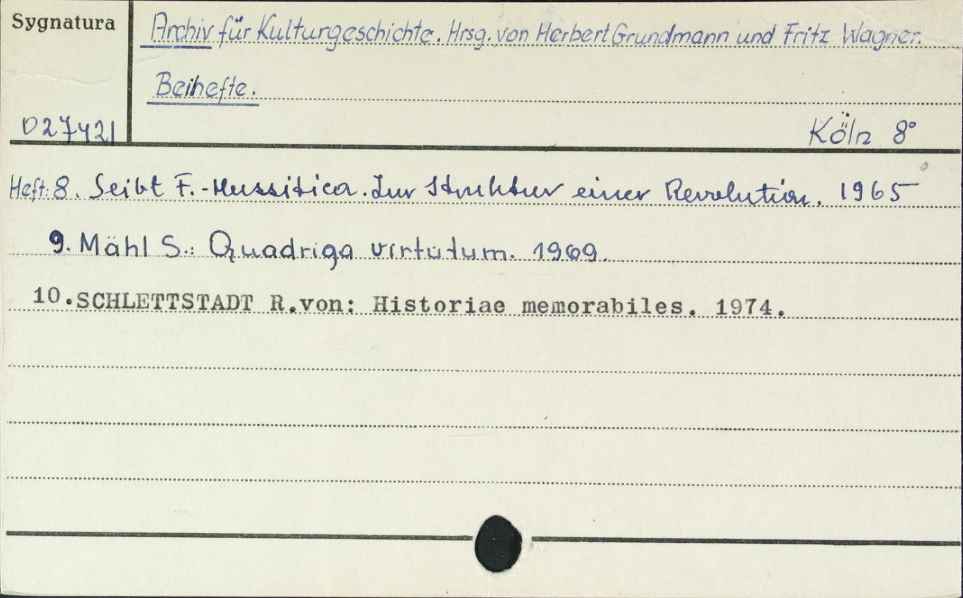 Sygnatura
Archiv für Kulturgeschichte. Hrsg. von Herbert Grundmann und Fritz Wagner.
Beihefte.
D27421
Köln 8°
Heft: 8. Seibt F. - Hussitica. Zur Struktur einer Revolution. 1965
9. Mähl S.: Quadriga virtutum. 1969.
10. SCHLETTSTADT R.von: Historiae memorabiles. 1974.